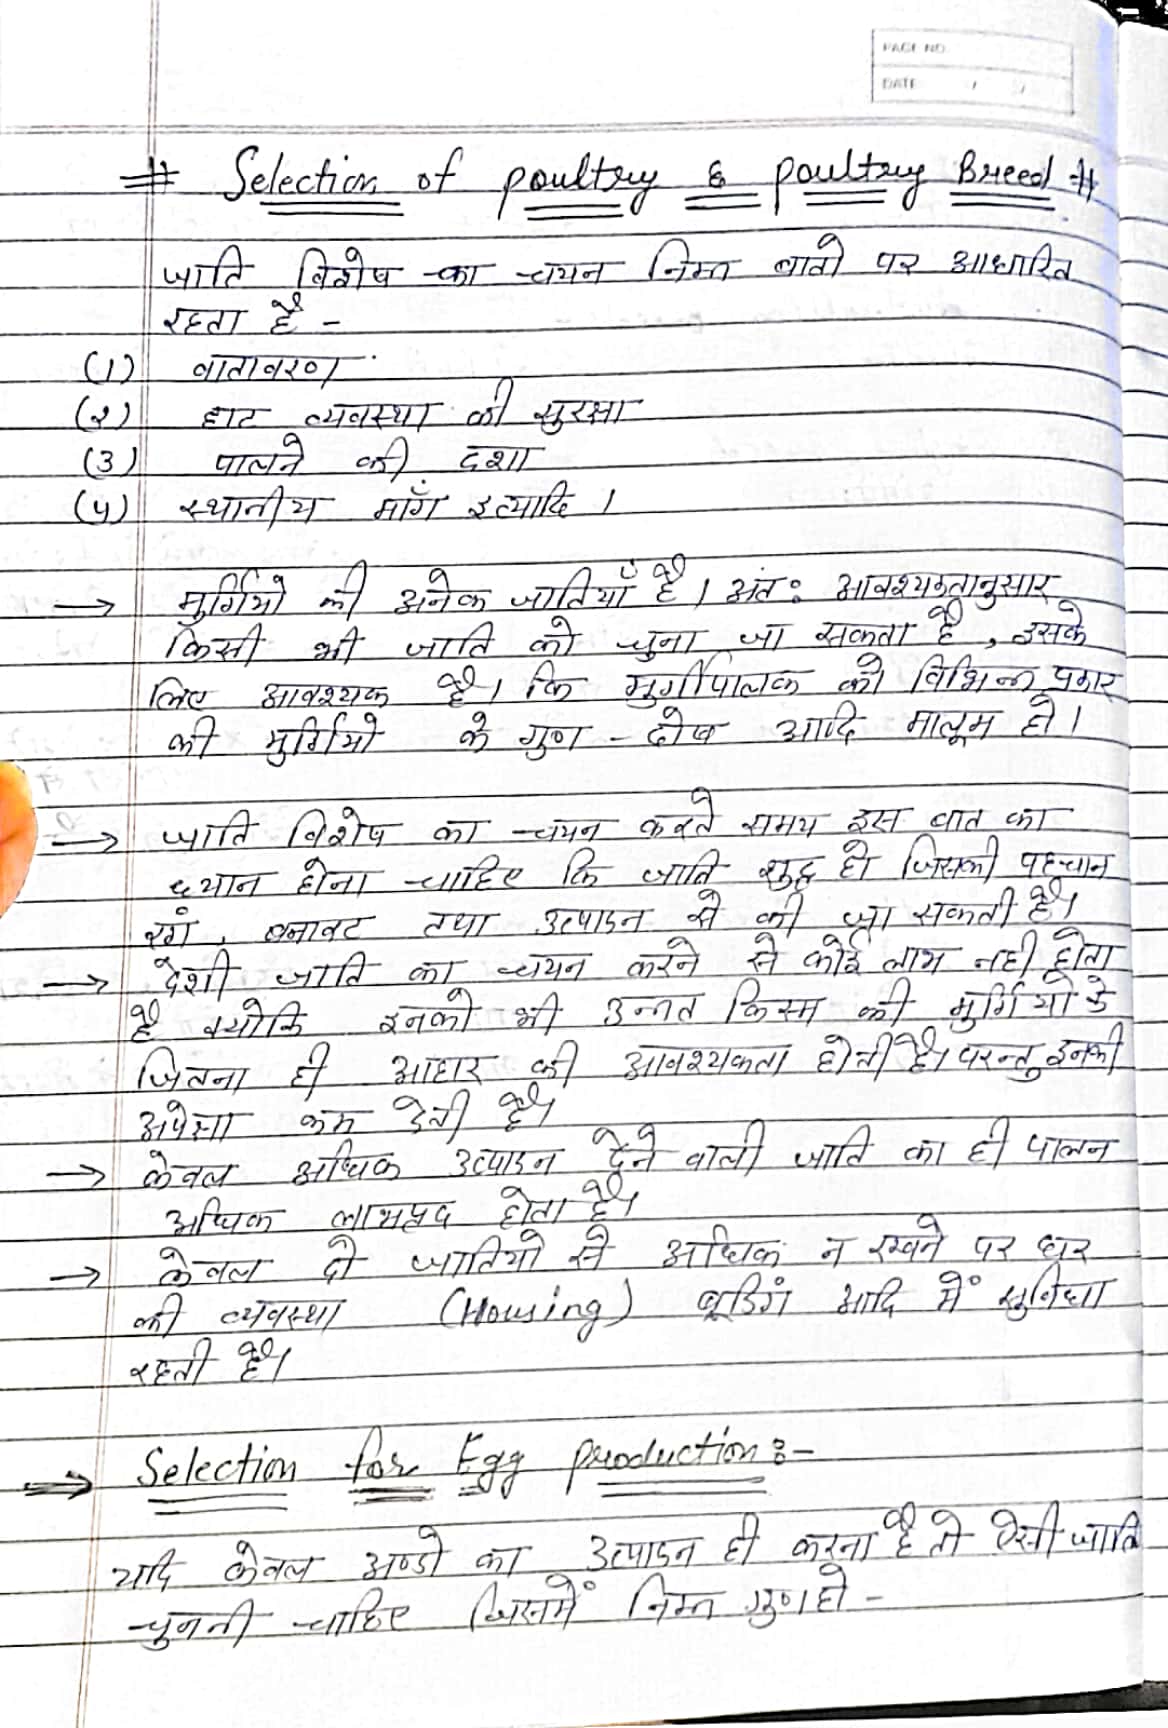 PAGE NO.
DATE / /
# Selection of poultry & poultry Breed #
जाति विशेष का चयन निम्न बातो पर आधारित
रहता है -
(1) वातावरण
(२) हाट व्यवस्था की सुरक्षा
(3) पालने की दशा
(५) स्थानीय माँग इत्यादि ।
→ मुर्गियो की अनेक जातियाँ है । अंत: आवश्यकतानुसार
किसी भी जाति को चुना जा सकता है , इसके
लिए आवश्यक है। कि मुर्गीपालक को विभिन्न प्रकार
की मुर्गियो के गुण - दोष आदि मालूम हो ।
→ जाति विशेष का चयन करते समय इस बात का
ध्यान होना चाहिए कि जाति शुद्ध हो जिसकी पहचान
रंग , बनावट तथा उत्पादन से की जा सकती है।
→ देशी जाति का चयन करने से कोई लाभ नही होता
है क्योकि इनको भी उन्नत किस्म की मुर्गियो के
जितना ही आहार की आवश्यकता होती है। परन्तु इनकी
अपेक्षा कम देती है।
→ केवल अधिक उत्पादन देने वाली जाति का ही पालन
अधिक लाभप्रद होता है।
→ केवल दो जातियो से अधिक न रखने पर घर
की व्यवस्था (Housing) ब्रूडिंग आदि में सुविधा
रहती है।
⇒ Selection for Egg production :-
यदि केवल अण्डो का उत्पादन ही करना है तो ऐसी जाति
चुननी चाहिए जिसमें निम्न गुण हो -